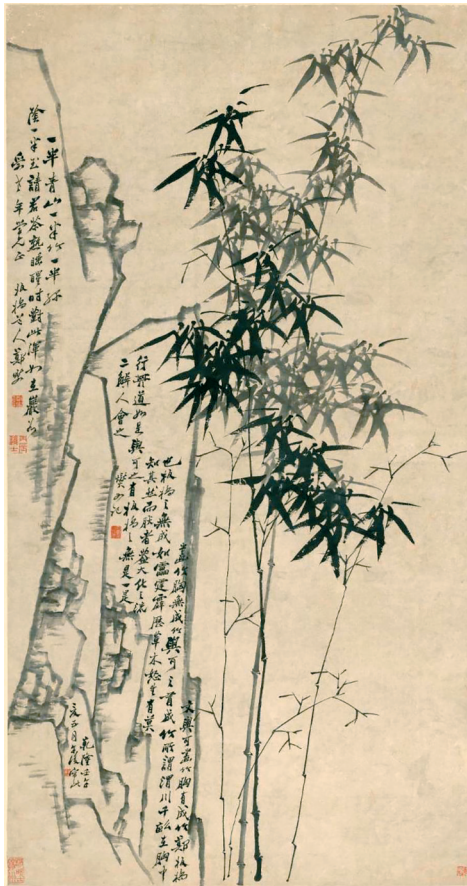 一半青山一半竹一半綠
陰一半玉請君茶熟睡醒時對此渾如在巖谷
老年學兄正 板橋老人鄭燮
文與可畫竹胸有成竹鄭板橋
畫竹胸無成竹與可之有成竹所謂渭川千畝在胸中
也板橋之無成如雷霆霹歷草木怒生有莫
知其然而然者蓋大化之流
行其道如是與可之有板橋之無是一是
二解人會之
燮又記
乾隆